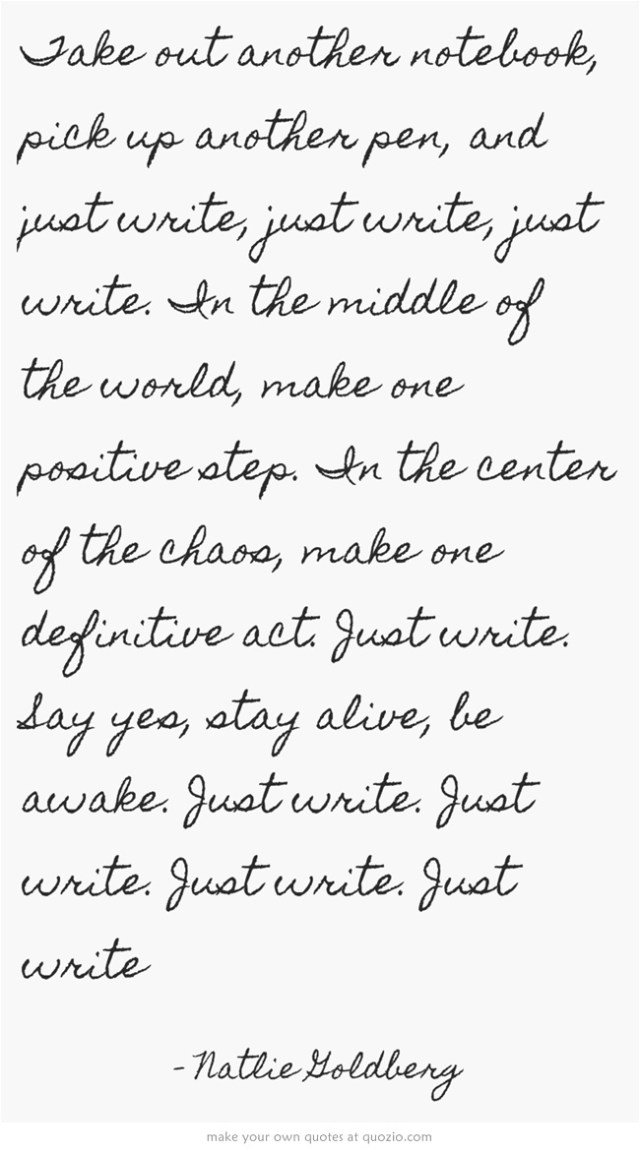 Take out another notebook,
pick up another pen, and
just write, just write, just
write. In the middle of
the world, make one
positive step. In the center
of the chaos, make one
definitive act. Just write.
Say yes, stay alive, be
awake. Just write. Just
write. Just write. Just
write
- Natlie Goldberg
make your own quotes at quozio.com